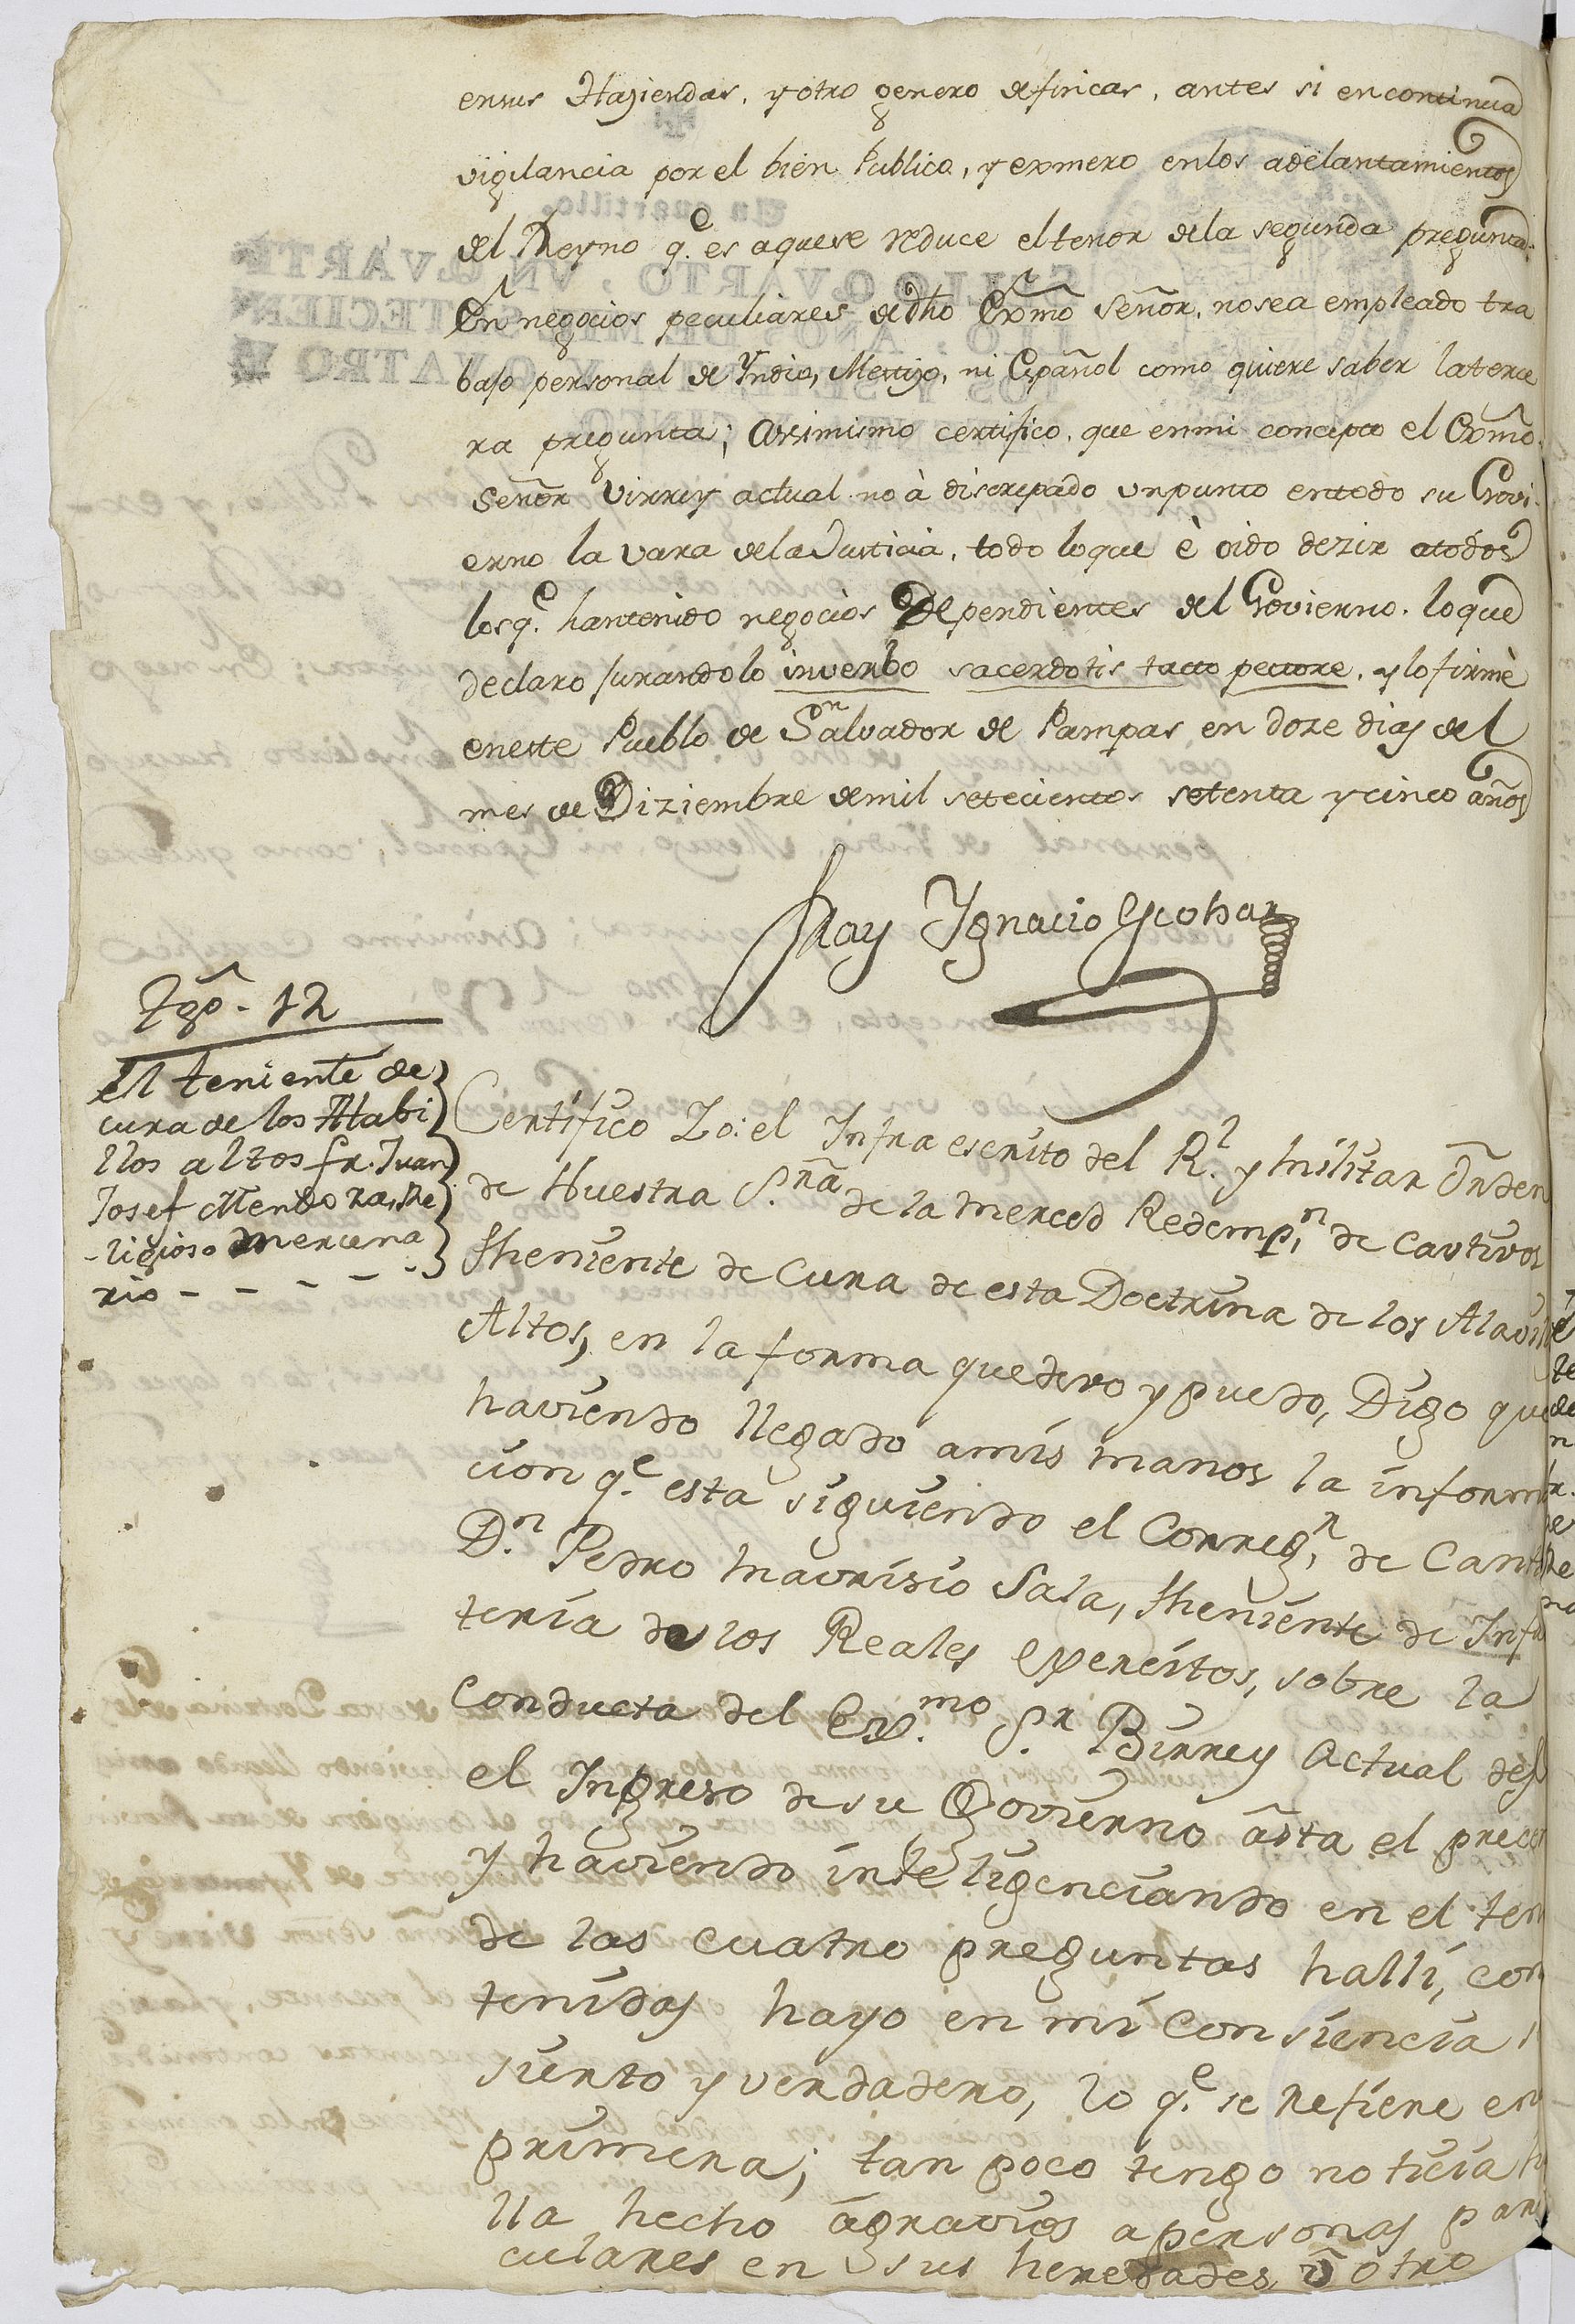 ensus Haziendas, y otro genero de fincas, antes si en continua
vigilancia por el bien Publico, y exmero enlos adelantamientos
del Reyno q.e es aquese reduce el tenor dela segunda pregunta.
En negocios peculiares de dho Exmo señor, nosea empleado tra
bajo personal de Yndio, Mestizo, ni Español como quiere saber la terce
ra pregunta; Assimismo certifico, que enmi concepto el Exmo.
Señor Virrey actual no à discrepado unpunto entodo su Govi-
erno la vara dela Justicia, todo loque è oido dezir atodos
losq.e hantenido negocios Dependientes del Govierno. loque
declaro jurandolo inverbo sacerdotis tacto pectore, y lo firmè
eneste Pueblo de Sn Salvador de Pampas en doze dias del
mes de Diziembre demil setecientos setenta y cinco años
Fray Ygnacio Escobar
Tgo. 12
el teniente de
cura de los Alabi
llos altos fr. Juan
Josef Mendoza, Re
-ligioso Mercena
rio - - - - -
Certifico Yo: el Infra escrito del R.l y Militar Orden
de Nuestra S.ra de la Merced Redemp.n de Cautivos
Theniente de Cura de esta Doctrina de los Alavill
Altos, en la forma que devo y puedo, Digo que
haviendo llegado amis manos la inform
cion q.e esta siguiendo el Correg.r de Canta
D.n Pedro Maurisio Sala, Theniente de Infa
teria de los Reales Exercitos, sobre la
conducta del Exc.mo S.r Birrey Actual des
el Ingreso de su Govierno asta el prece
y haviendo inteligenciando en el ten
de las cuatro preguntas halli, con
tenidas hayo en mi Consiencia
sierto y verdadero, lo q.e se refiere en
primera; tan poco tengo noticia h
lla hecho agravios a personas par
culares en sus heredades, ù otro